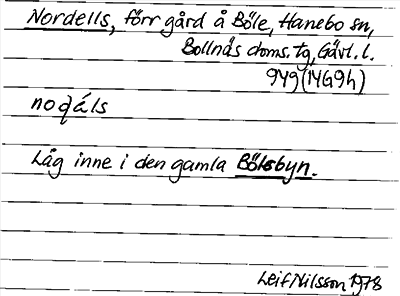 Nordells, förr gård å Böle, Hanebo sn,
Bollnäs doms. tg, Gävl. l.
949 (14G9h)
noɖǽls
Låg inne i den gamla Bölesbyn.
Leif Nilsson 1978